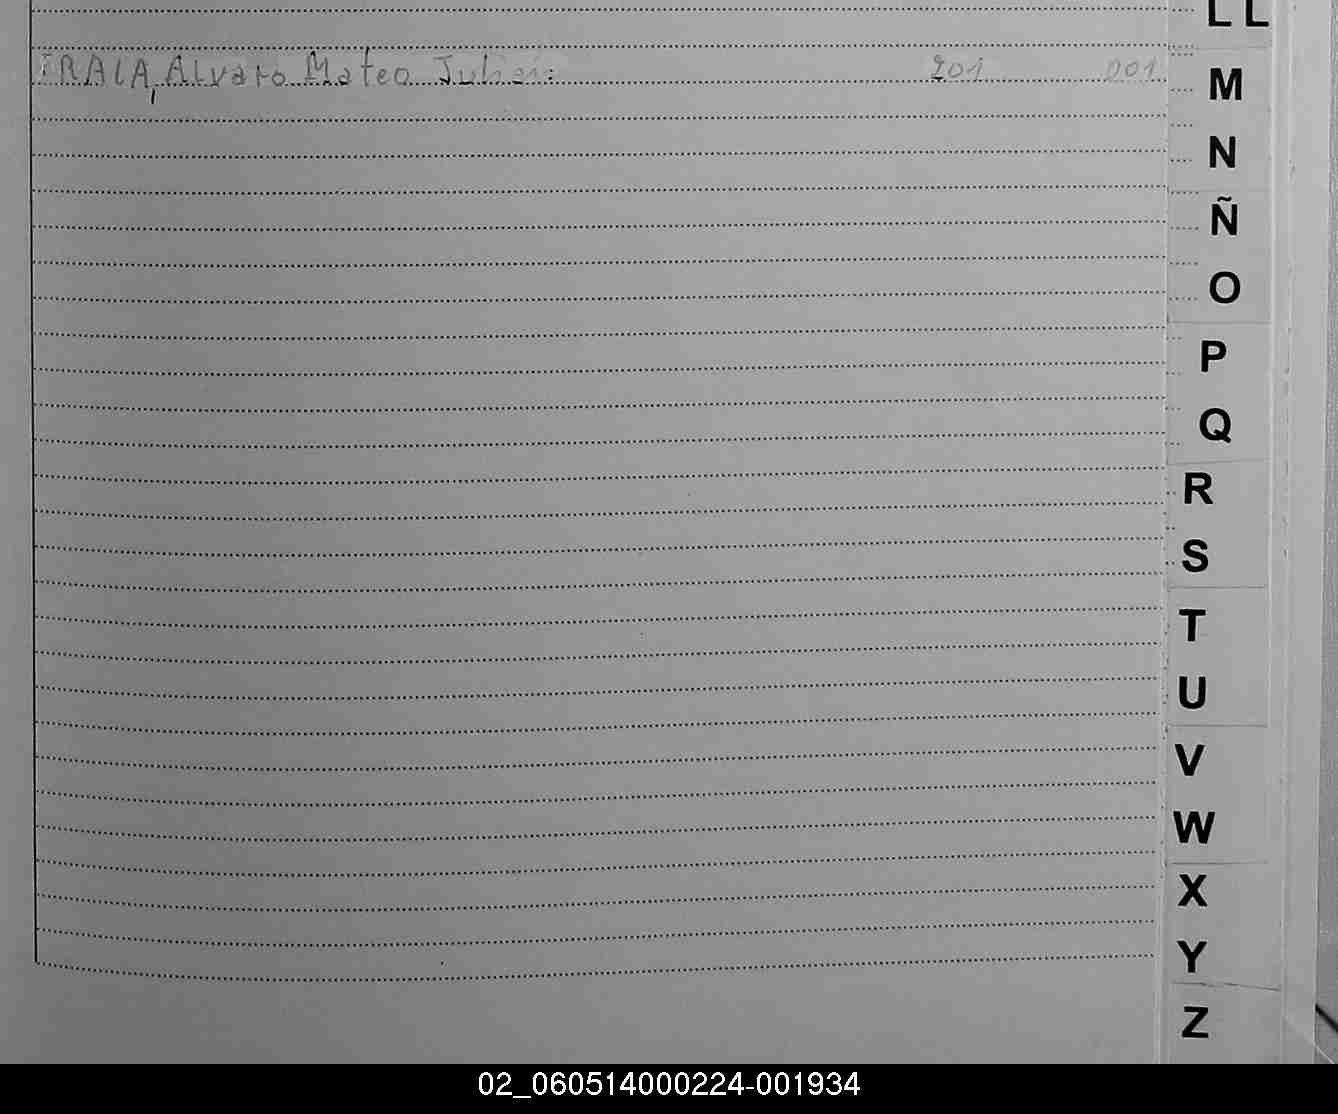 LL
IRALA, Alvaro Mateo Julian: 201 001
M
N
Ñ
O
P
Q
R
S
T
U
V
W
X
Y
Z
02_060514000224-001934